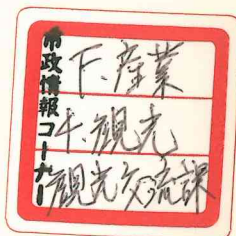 市政情報コーナー
F.産業
4.観光
観光交流課